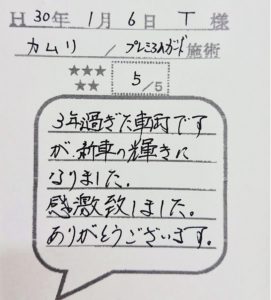 H 30年 1月 6日 T 様
カムリ / プレミアムガード 施術
★★★
★★
5/5
3年過ぎた車両です
が、新車の輝きに
なりました。
感激致しました。
ありがとうございます。